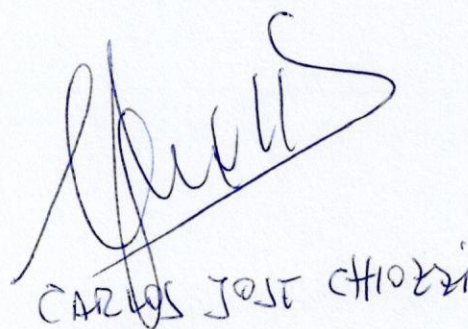 CARLOS JOSE CHIOZZI